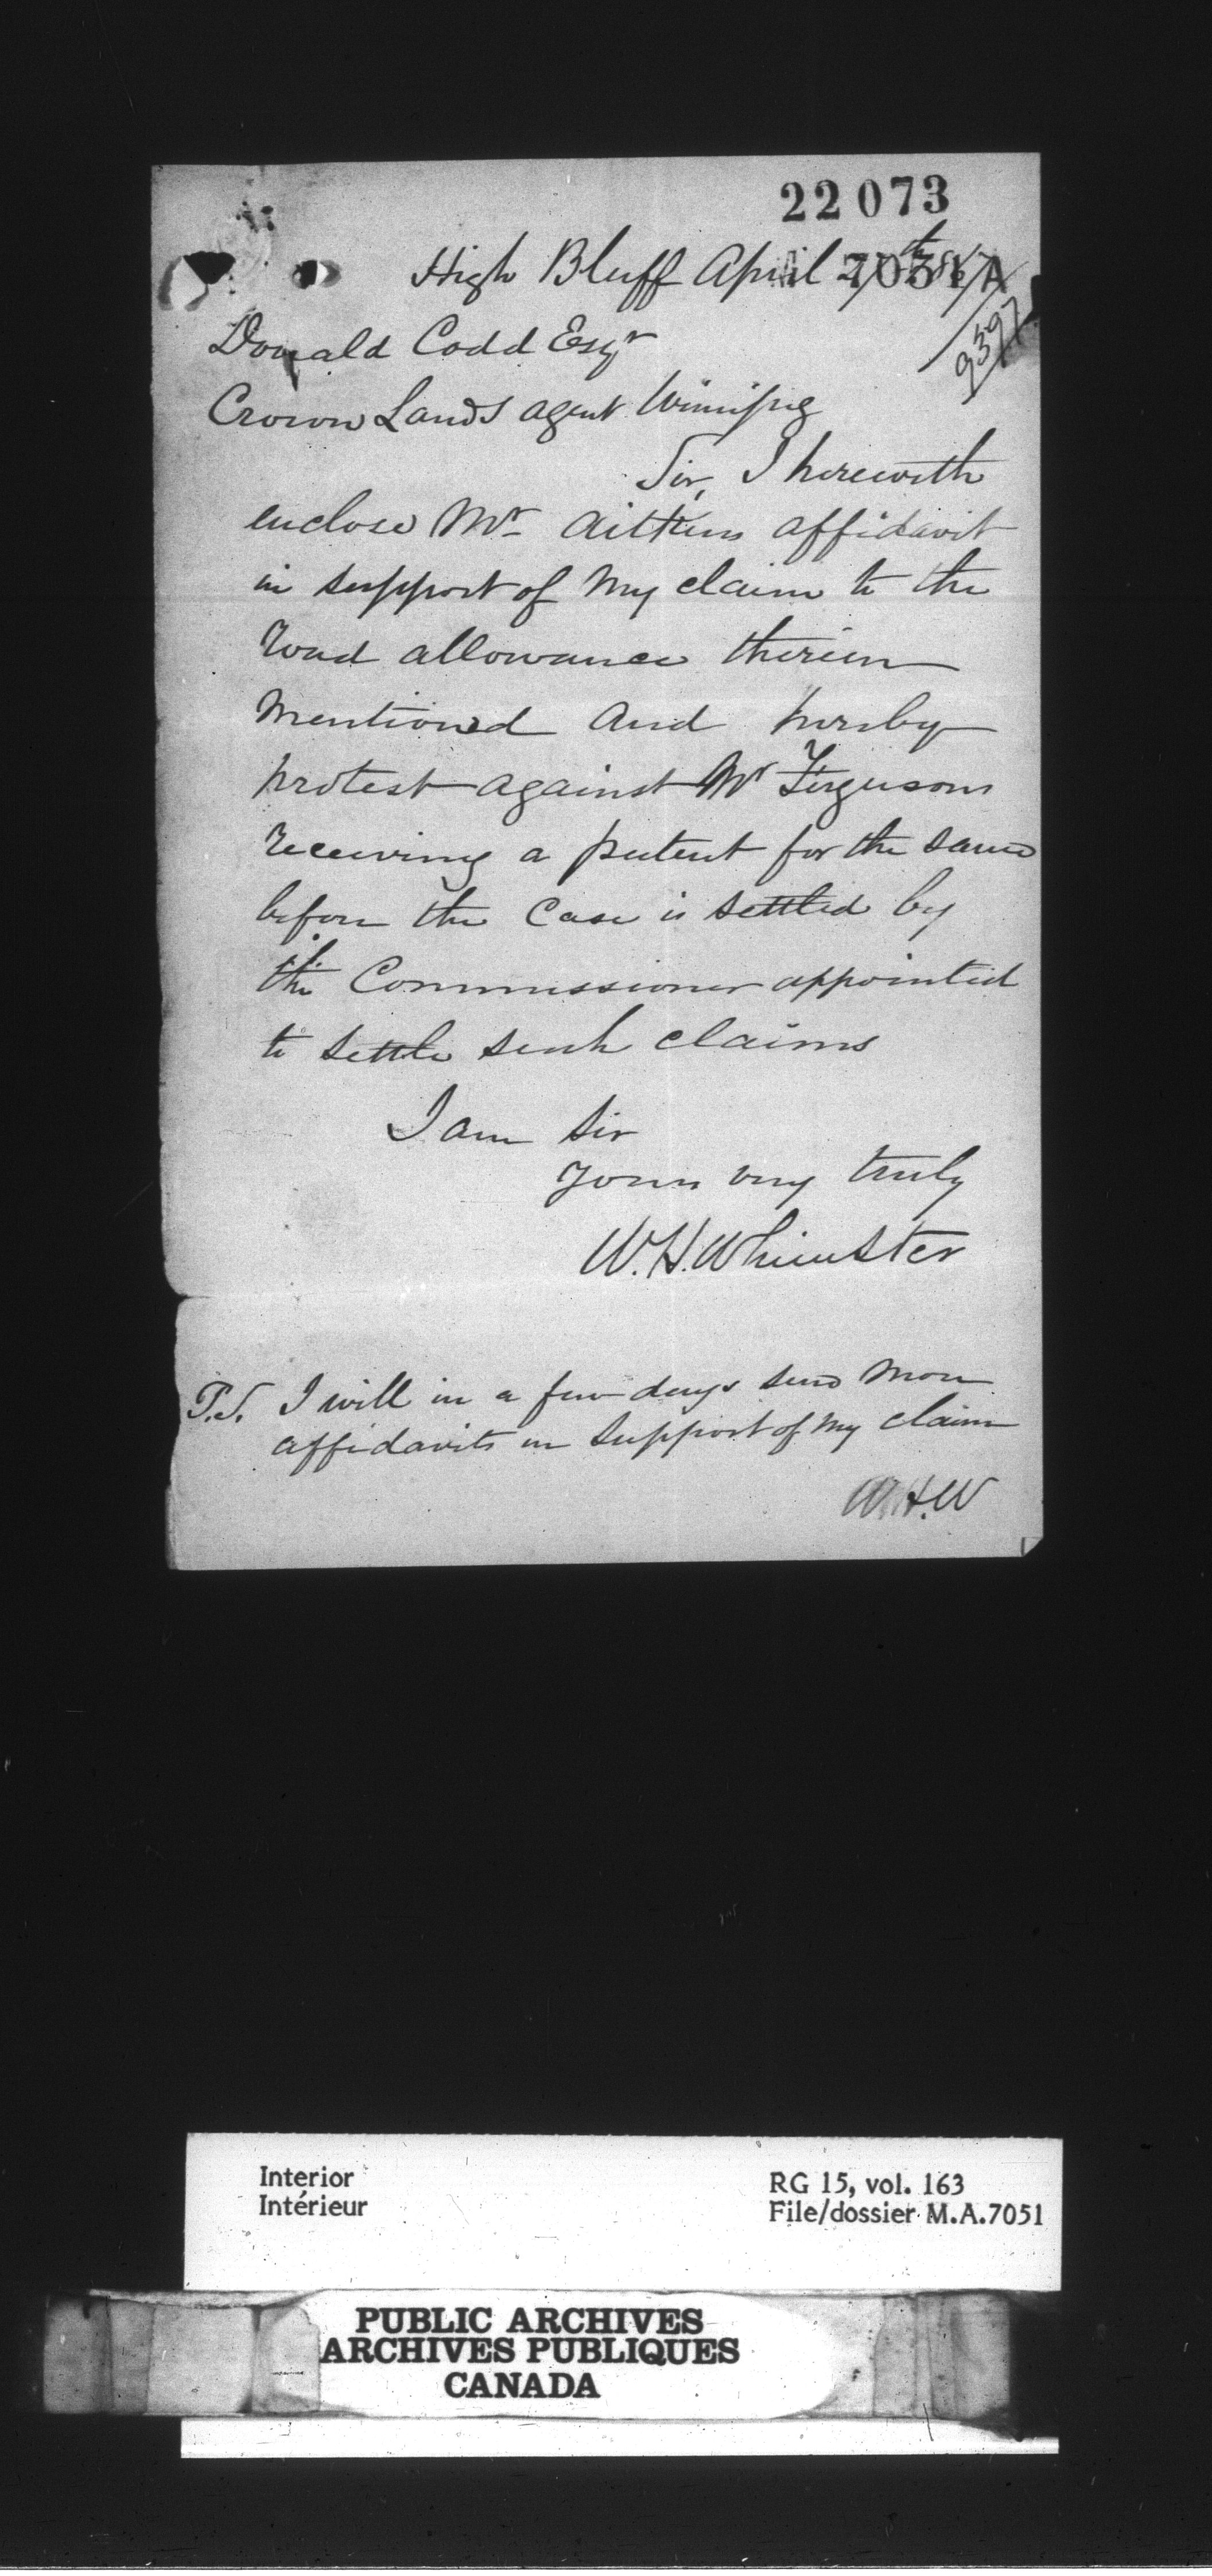 22073
High Bluff April
7051 A
9397
Donald Codd Esqr
Crown Lands agent Winnipeg
Sir, I herewith
enclose Mr Aitkens affidavit
in support of my claim to the
Road allowance therein
Mentioned and hereby
protest against Mr Fergusons
receiving a patent for the same
before the Case is settled by
the Commissioner appointed
to settle such claims
I am Sir
Yours very truly
W.H. Whimster
P.S. I will in a few days send more
affidavits in support of my claim
W.H.W
Interior
Intérieur
RG 15, vol. 163
File/dossier M.A.7051
PUBLIC ARCHIVES
ARCHIVES PUBLIQUES
CANADA